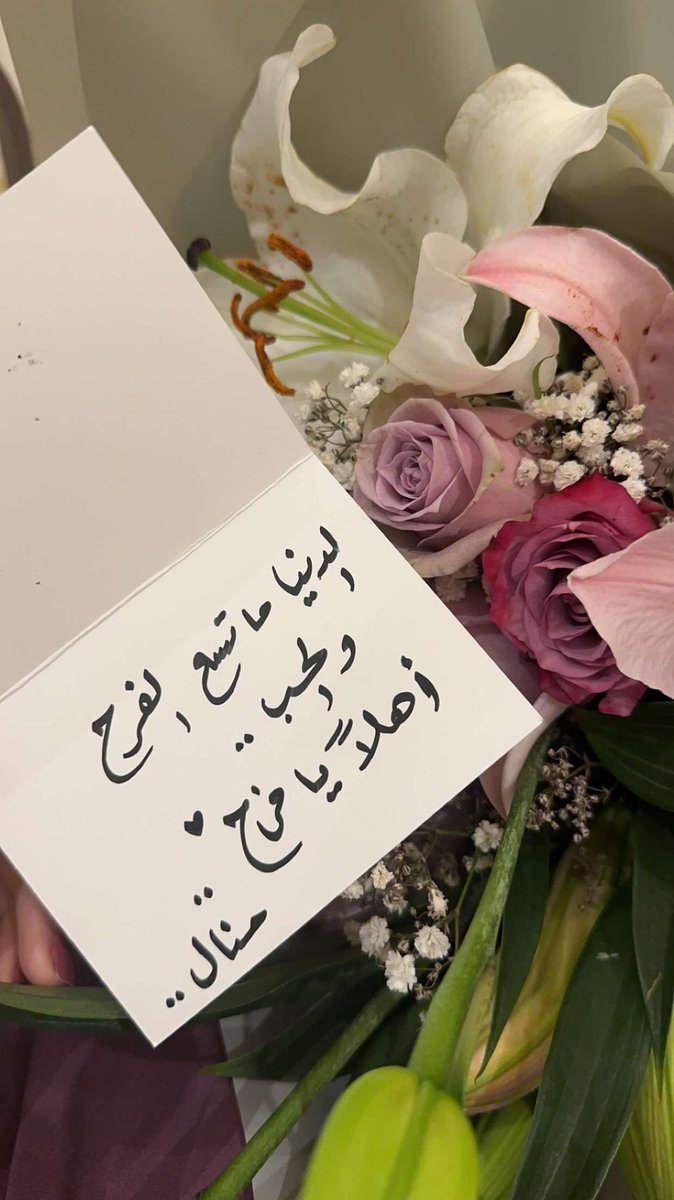 الدنيا ما تسع الفرح
والحب ..
أهلاً يا فرح ♥
منال ..